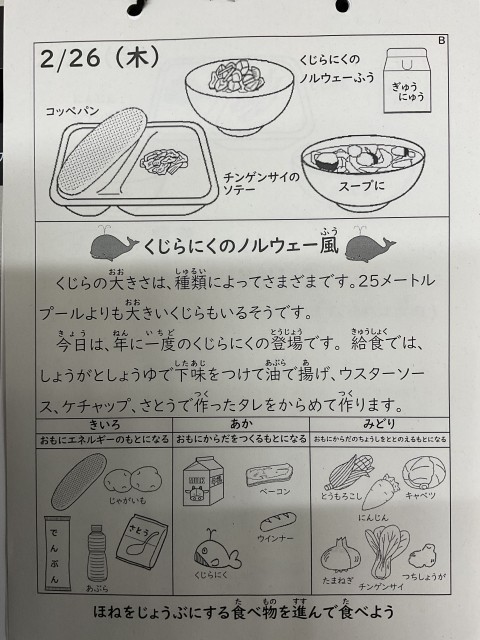 B
2/26（木）
くじらにくの
ノルウェーふう
ぎゅう
にゅう
コッペパン
チンゲンサイの
ソテー
スープに
くじらにくのノルウェー風
くじらの大きさは、種類によってさまざまです。25メートル
プールよりも大きいくじらもいるそうです。
今日は、年に一度のくじらにくの登場です。給食では、
しょうがとしょうゆで下味をつけて油で揚げ、ウスターソー
ス、ケチャップ、さとうで作ったタレをからめて作ります。
きいろ
あか
みどり
おもにエネルギーのもとになる
おもにからだをつくるもとになる
おもにからだのちょうしをととのえるもとになる
じゃがいも
でんぷん
あぶら
さとう
ベーコン
ウインナー
くじらにく
とうもろこし
キャベツ
にんじん
たまねぎ
チンゲンサイ
つちしょうが
ほねをじょうぶにする食べ物を進んで食べよう